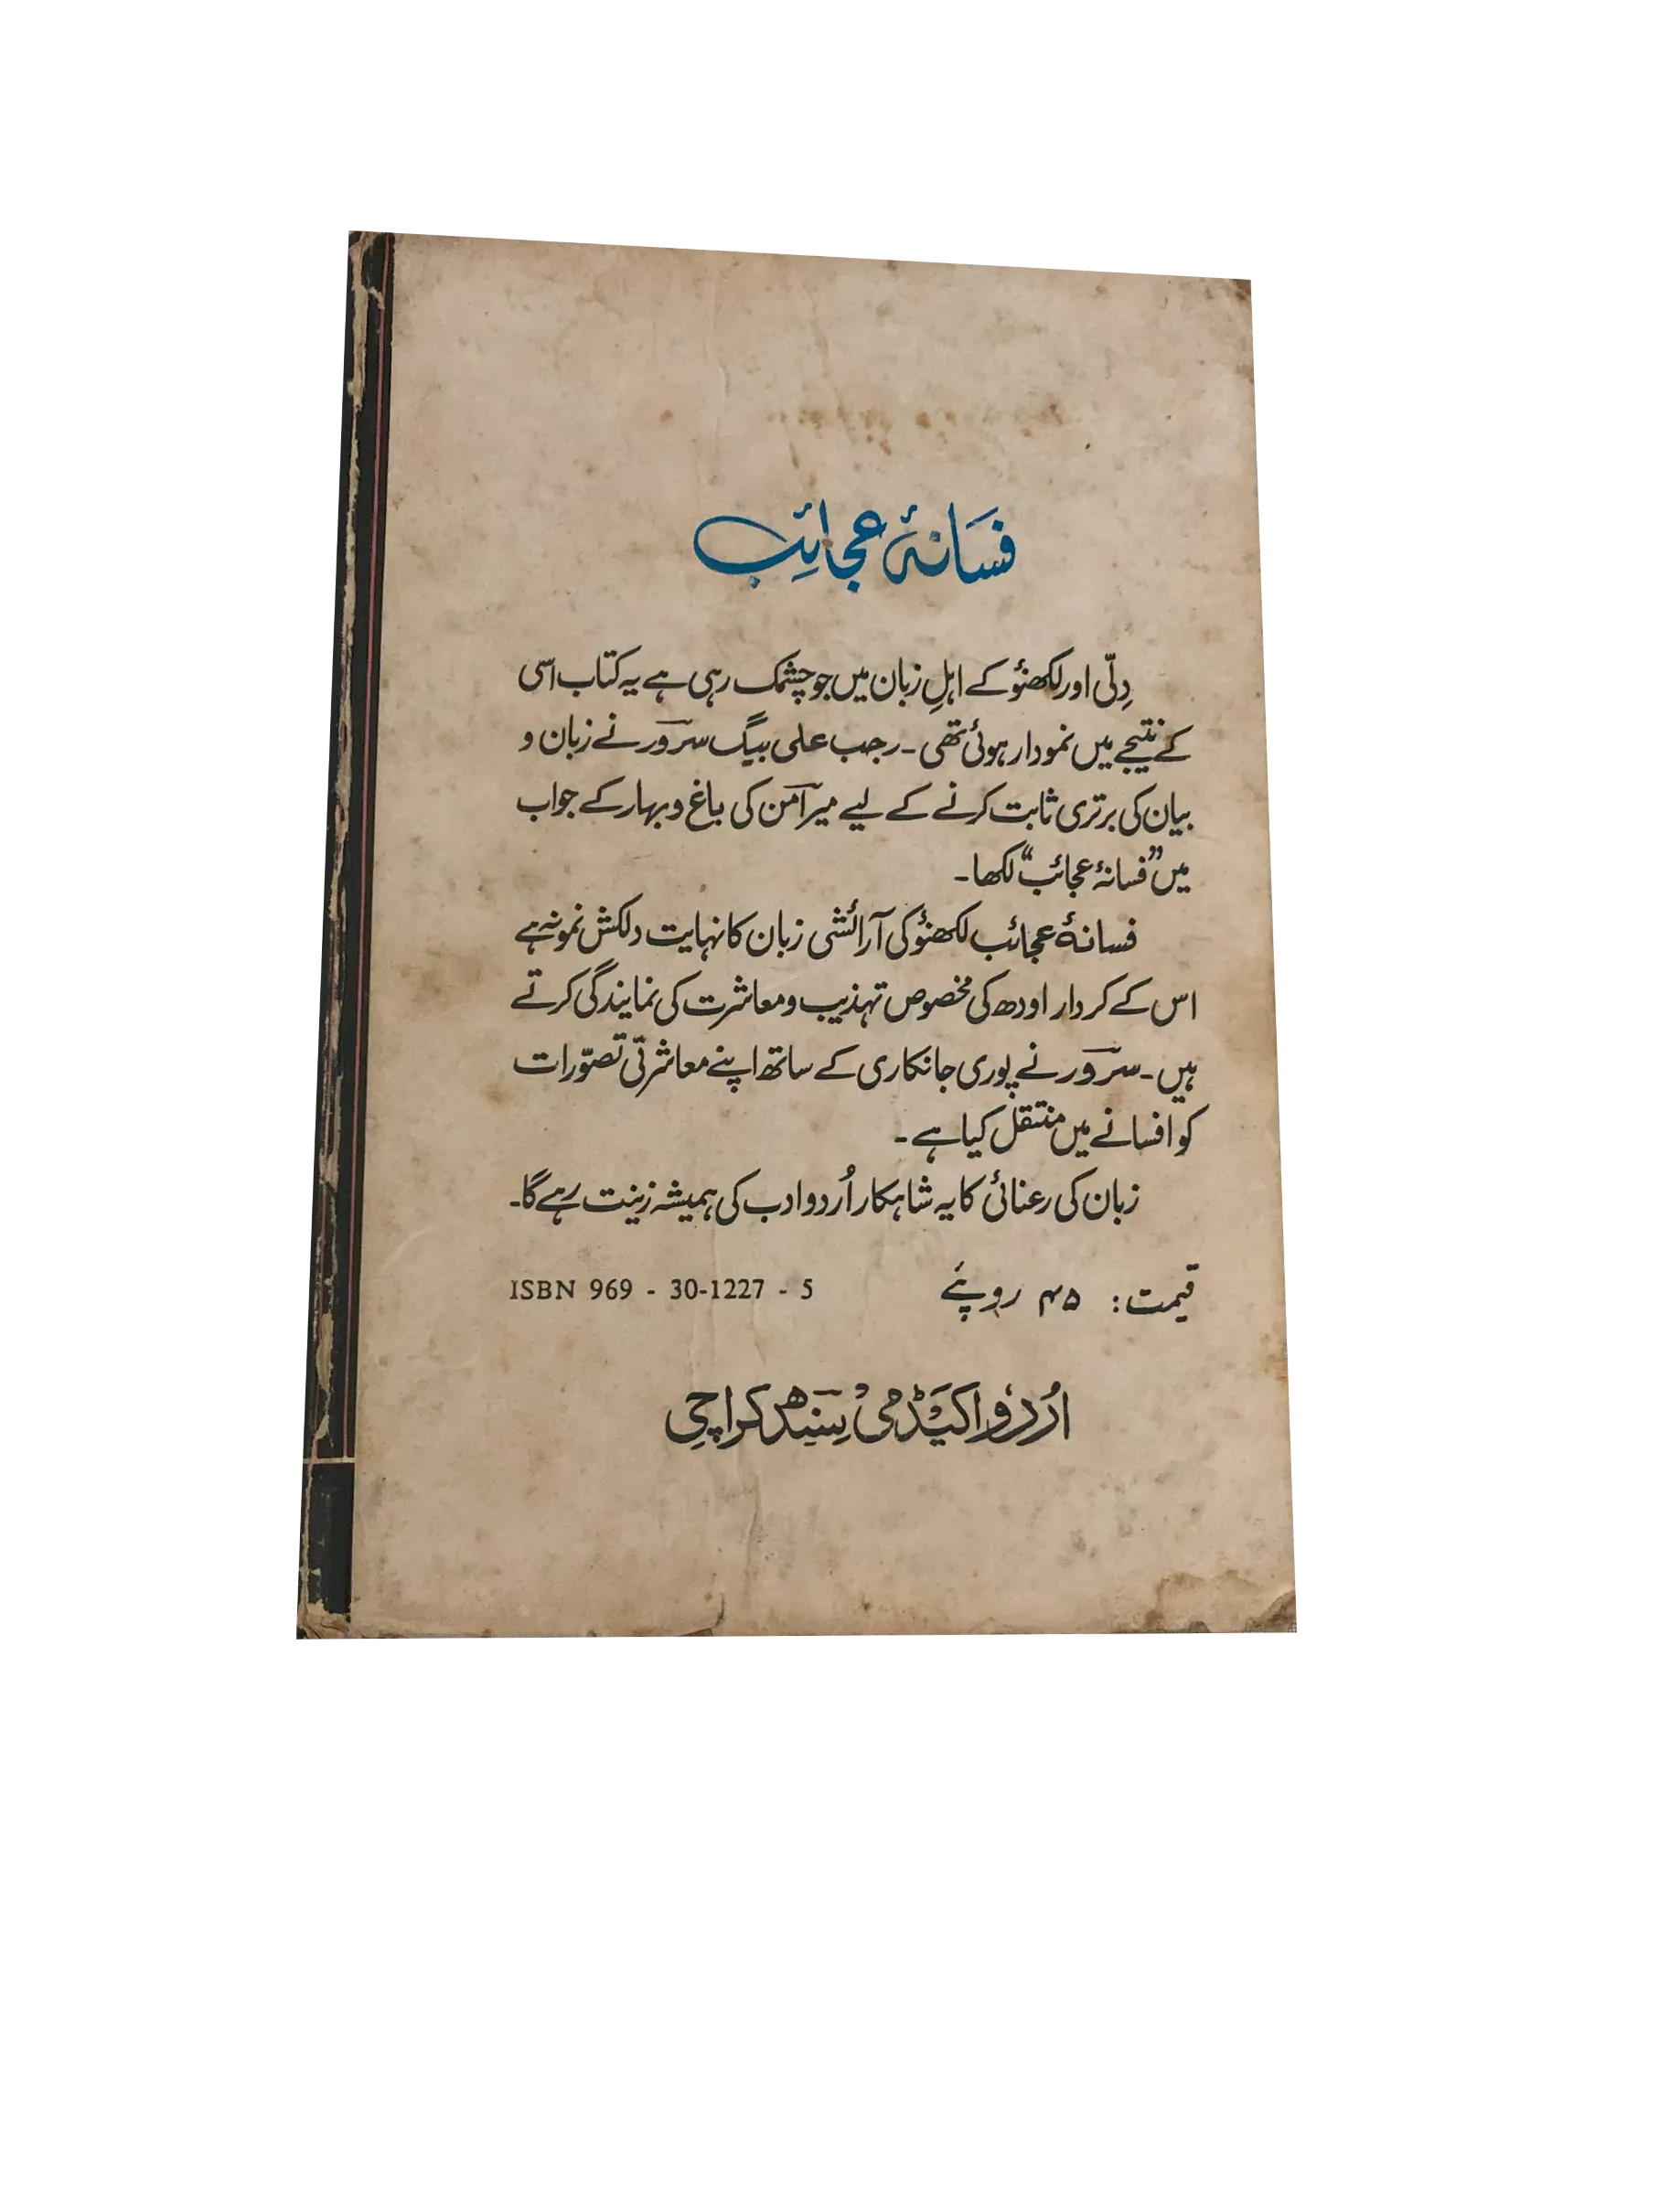 فسانۂ عجائب
دِلّی اور لکھنؤ کے اہلِ زبان میں جو چشمک رہی ہے یہ کتاب اسی
کے نتیجے میں نمودار ہوئی تھی ۔ رجب علی بیگ سرور نے زبان و
بیان کی برتری ثابت کرنے کے لیے میر امن کی باغ و بہار کے جواب
میں ”فسانۂ عجائب“ لکھا ۔
فسانۂ عجائب لکھنؤ کی آرائشی زبان کا نہایت دلکش نمونہ ہے
اس کے کردار اودھ کی مخصوص تہذیب و معاشرت کی نمایندگی کرتے
ہیں ۔ سرور نے پوری جانکاری کے ساتھ اپنے معاشرتی تصوّرات
کو افسانے میں منتقل کیا ہے ۔
زبان کی رعنائی کا یہ شاہکار اُردو ادب کی ہمیشہ زینت رہے گا ۔
قیمت : ۴۵ روپئے ISBN 969 - 30-1227 - 5
اُردو اکیڈمی سندھ کراچی